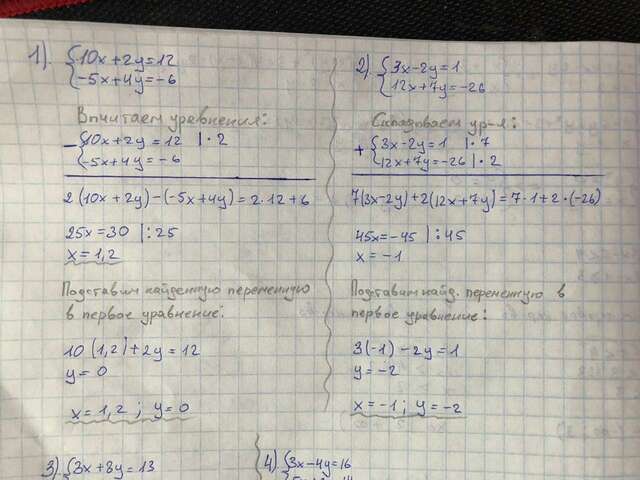 1). {10x+2y=12
-5x+4y=-6
Вычитаем уравнения:
- {10x+2y=12 |·2
-5x+4y=-6
2(10x+2y)-(-5x+4y)=2·12+6
25x=30 |:25
x=1,2
Подставим найденную переменную
в первое уравнение:
10(1,2)+2y=12
y=0
x=1,2; y=0
2). {3x-2y=1
12x+7y=-26
Складываем ур-я:
+ {3x-2y=1 |·7
12x+7y=-26 |·2
7(3x-2y)+2(12x+7y)=7·1+2·(-26)
45x=-45 |:45
x=-1
Подставим найд. переменную в
первое уравнение:
3(-1)-2y=1
y=-2
x=-1; y=-2
3). {3x+8y=13
4). {3x-4y=16